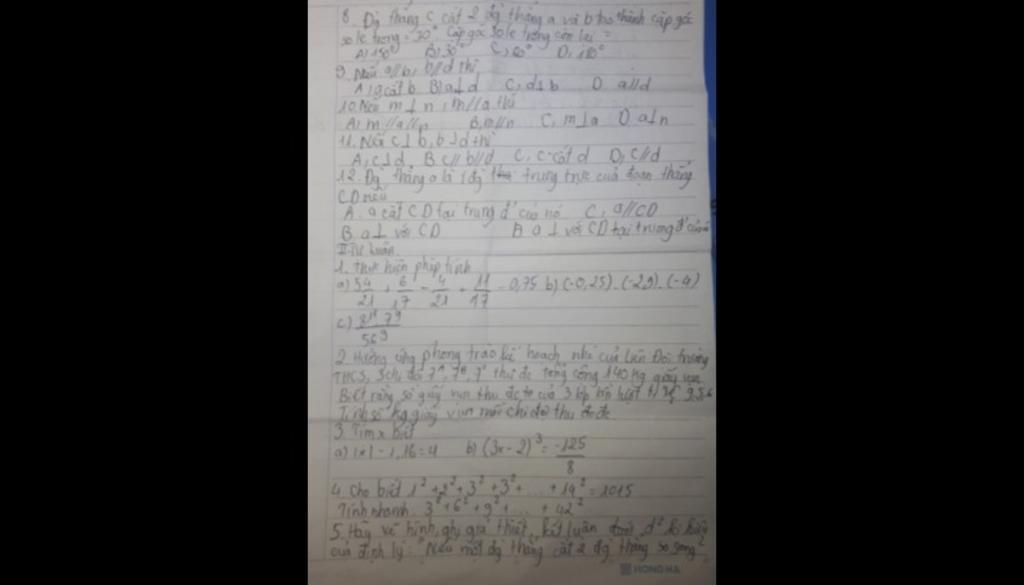 8. Đg thẳng c cắt 2 đg thẳng a và b tạo thành cặp góc
so le trong = 30° Cặp góc so le trong còn lại =
A) 150° B) 30° C, 60° D, 180°
9. Nếu a//b, b//d thì
A, a cắt b B) a⊥d C, d⊥b D a//d
10. Nếu m⊥n, m//a thì
A, m//a//n B, m//n C, m⊥a D a⊥n
11. Nếu c⊥b, b⊥d thì
A, c⊥d B c//b//d C, c cắt d D, c//d
12. Đg thẳng a là đg trung trực của đoạn thẳng
CD nếu
A. a cắt CD tại trung đ' của nó C, a//CD
B a⊥ với CD a⊥ với CD tại trung đ' của
II. Tự luận
1. Thực hiện phép tính
a) 54/21 + 6/17 - 4/21 + 11/17 - 0,75 b) (-0,25).(-2,9).(-4)
c) 7⁹/56⁹
2. Hưởng ứng phong trào kế hoạch nhỏ của Liên Đội trường
THCS, 3 chi đội 7ᴬ, 7ᴮ, 7ᶜ thu đc tổng cộng 140 kg giấy vụn
Biết rằng số giấy vụn thu đc của 3 lớp lần lượt
Tính số kg giấy vụn mỗi chi đội thu đc
3. Tìm x biết
a) |x| - 1,16 = 4 b) (3x - 2)³ = -125/8
4. Cho biết 1² + 2² + 3² + 3² + ... + 14² = 1015
Tính nhanh. 3² + 6² + 9² + ... + 42²
5. Hãy vẽ hình, ghi giả thiết, kết luận
của định lý: "Nếu một đg thẳng cắt 2 đg thẳng song song"
HONG HA